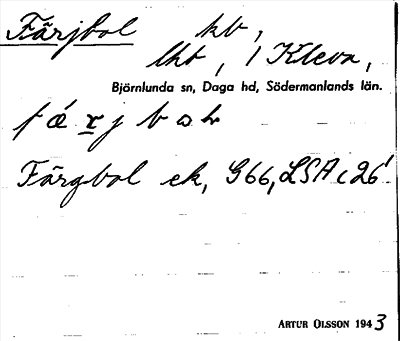 Färjbol kb,
lht, 1 Kleva,
Björnlunda sn, Daga hd, Södermanlands län.
Färgbol ek, G66, LSA c 26
ARTUR OLSSON 1943